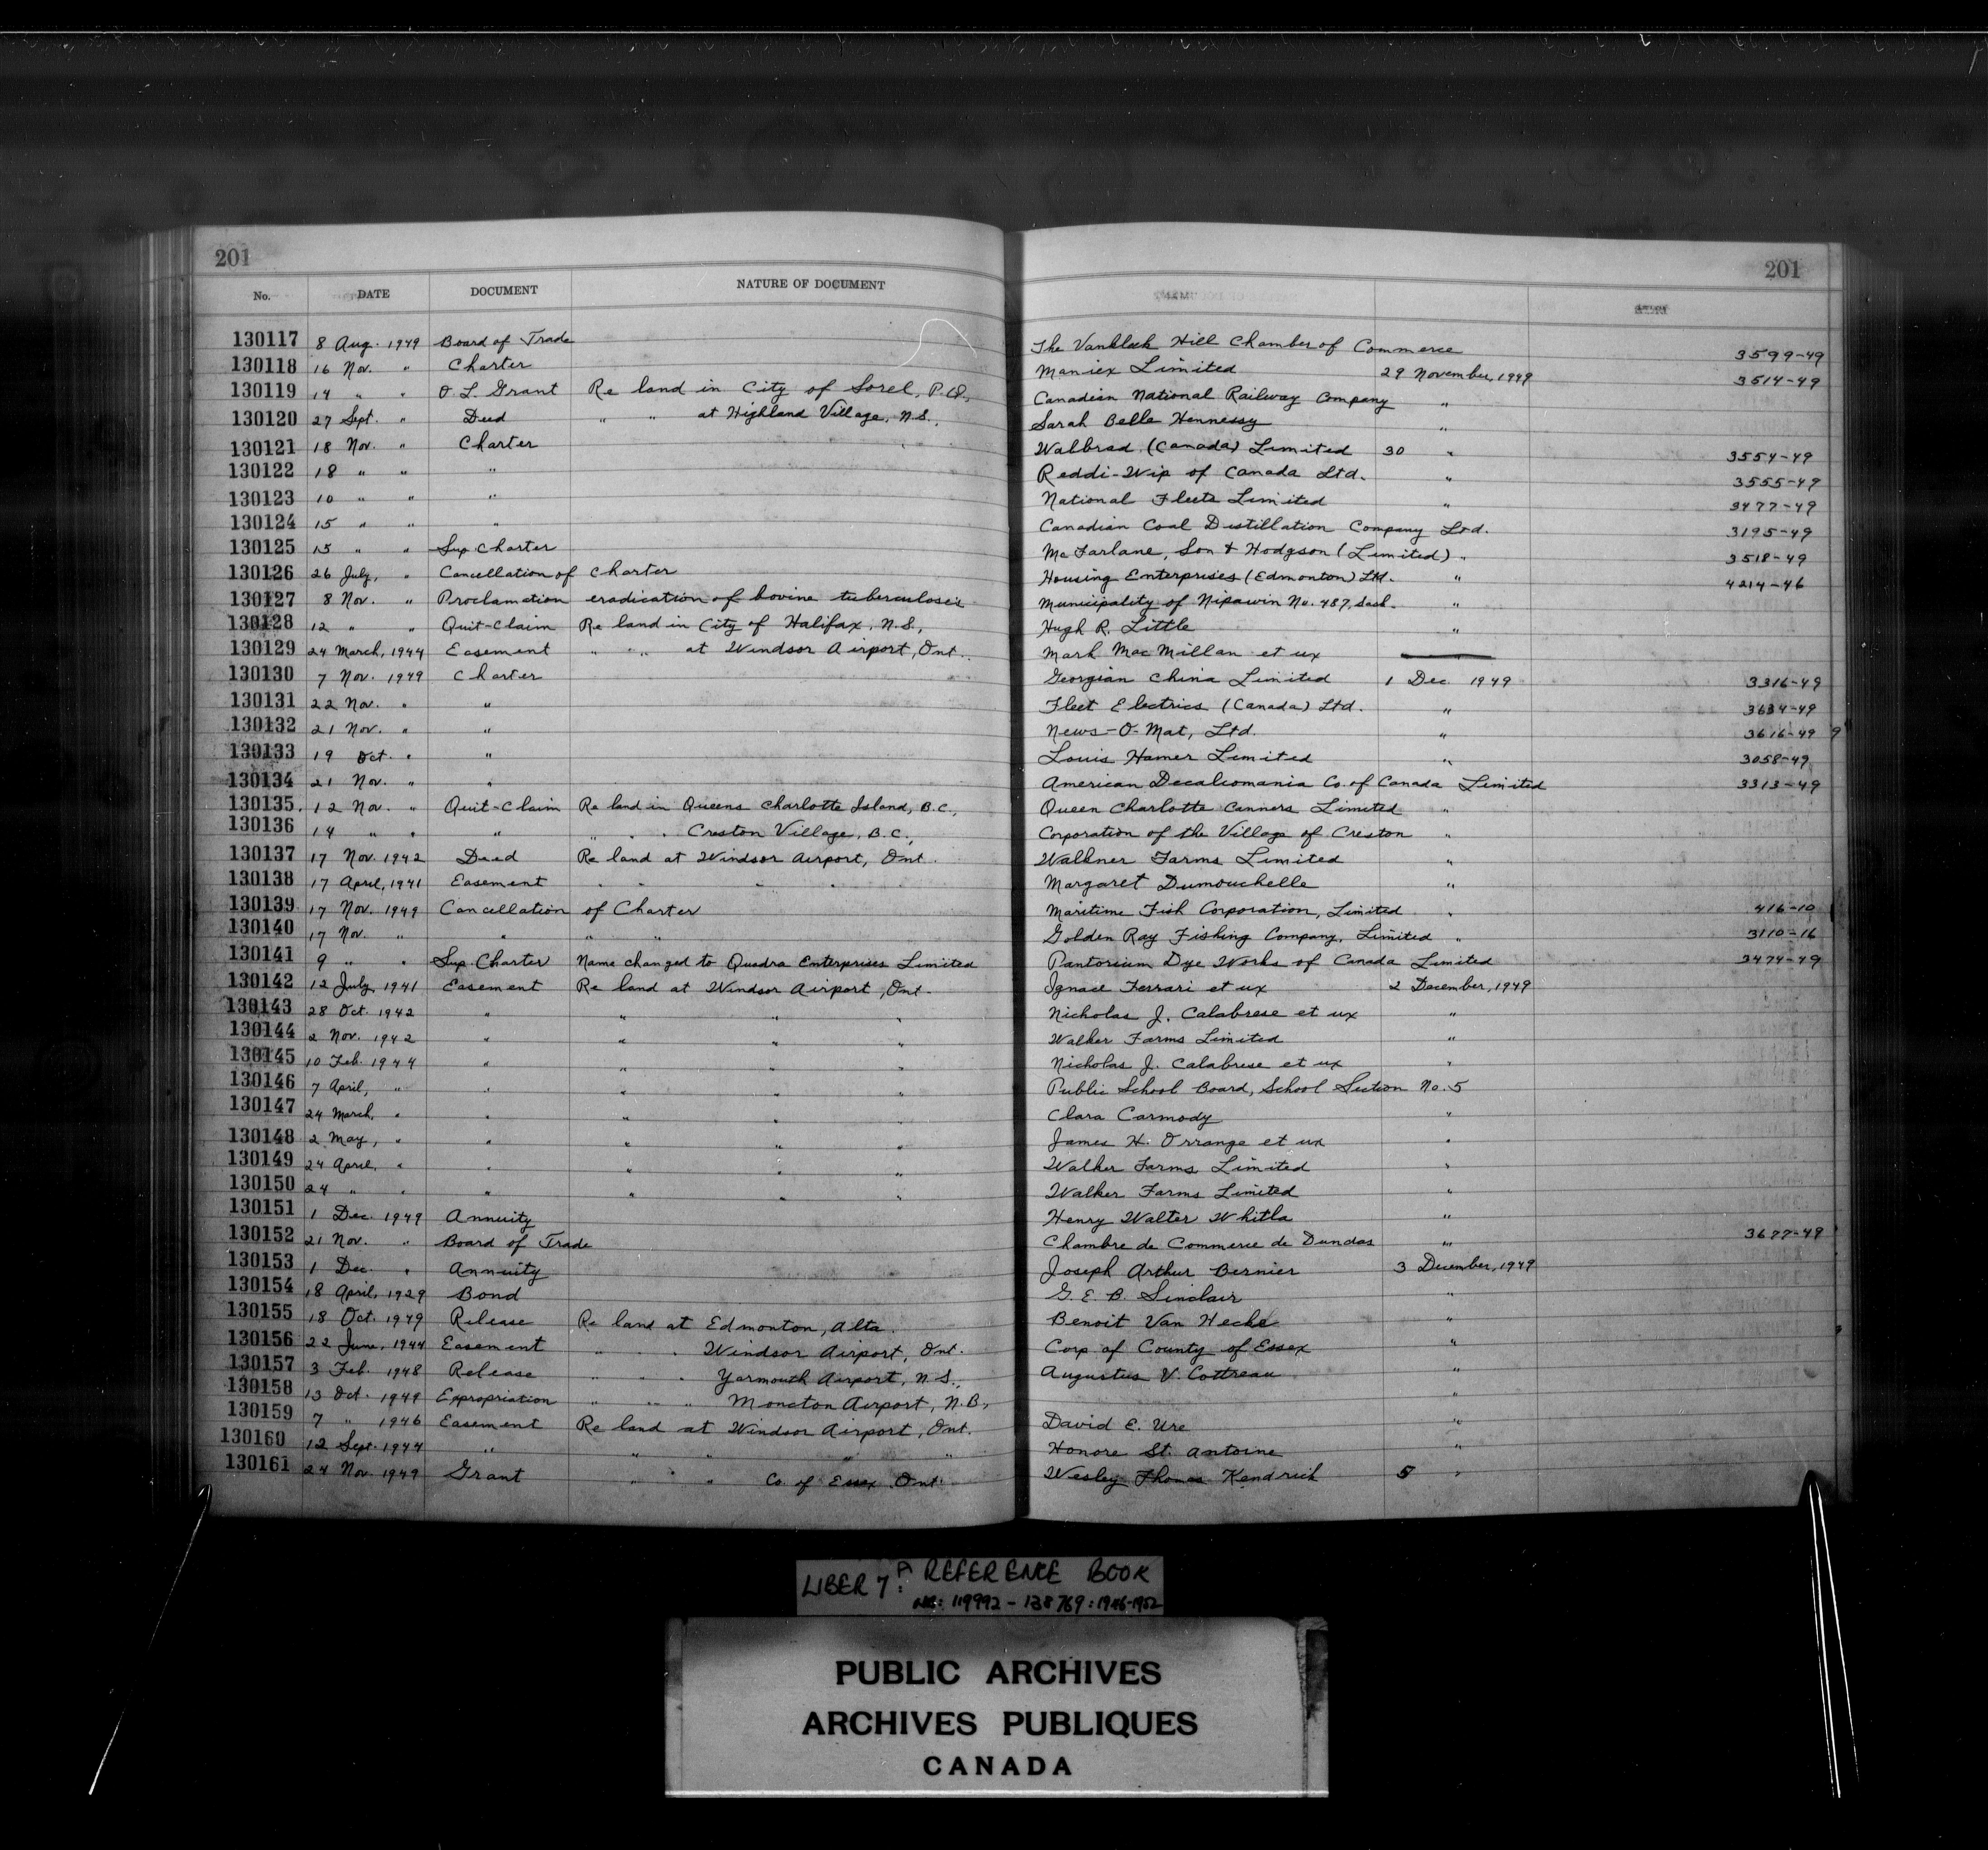 201 201
No. DATE DOCUMENT NATURE OF DOCUMENT
130117 8 Aug. 1949 Board of Trade The Vankleek Hill Chamber of Commerce 3599-49
130118 16 Nov. " Charter Maniex Limited 29 November, 1949 3514-49
130119 14 " " O.L. Grant Re land in City of Sorel, P.Q. Canadian National Railway Company "
130120 27 Sept. " Deed " " at Highland Village, N.S. Sarah Belle Hennessy "
130121 18 Nov. " Charter Walbrad (Canada) Limited 30 " 3554-49
130122 18 " " " Reddi-Wip of Canada Ltd. " 3555-49
130123 10 " " " National Fleets Limited " 3477-49
130124 15 " " " Canadian Coal Distillation Company Ltd. 3195-49
130125 15 " " Sup Charter McFarlane, Son & Hodgson (Limited) " 3518-49
130126 26 July, " Cancellation of Charter Housing Enterprises (Edmonton) Ltd. " 4214-46
130127 8 Nov. " Proclamation eradication of bovine tuberculosis Municipality of Nipawin No. 487, Sask. "
130128 12 " " Quit-Claim Re land in City of Halifax, N.S., Hugh R. Little "
130129 24 March, 1944 Easement " " at Windsor Airport, Ont. Mark MacMillan et ux
130130 7 Nov. 1949 Charter Georgian China Limited 1 Dec 1949 3316-49
130131 22 Nov. " " Fleet Electrics (Canada) Ltd. " 3634-49
130132 21 Nov. " " News-O-Mat, Ltd. " 3616-49
130133 19 Oct. " " Louis Hamer Limited " 3058-49
130134 21 Nov. " " American Decalcomania Co. of Canada Limited 3313-49
130135 12 Nov. " Quit-Claim Re land in Queens Charlotte Island, B.C., Queen Charlotte Canners Limited "
130136 14 " " " " " " Creston Village, B.C., Corporation of the Village of Creston "
130137 17 Nov. 1942 Deed Re land at Windsor Airport, Ont. Walkner Farms Limited "
130138 17 April, 1941 Easement " " " " Margaret Dumouchelle "
130139 17 Nov. 1949 Cancellation of Charter Maritime Fish Corporation, Limited " 416-10
130140 17 Nov. " " " " Golden Ray Fishing Company, Limited " 3110-16
130141 9 " " Sup. Charter Name changed to Quadra Enterprises Limited Pantorium Dye Works of Canada Limited 3474-49
130142 12 July, 1941 Easement Re land at Windsor Airport, Ont. Ignace Ferrari et ux 2 December, 1949
130143 28 Oct. 1942 " " " " Nicholas J. Calabrese et ux "
130144 2 Nov. 1942 " " " " Walker Farms Limited "
130145 10 Feb. 1944 " " " " Nicholas J. Calabrese et ux "
130146 7 April, " " " " " Public School Board, School Section No. 5
130147 24 March, " " " " " Clara Carmody "
130148 2 May, " " " " " James H. Orrange et ux "
130149 24 April, " " " " " Walker Farms Limited "
130150 24 " " " " " " Walker Farms Limited "
130151 1 Dec. 1949 Annuity Henry Walter Whitla "
130152 21 Nov. " Board of Trade Chambre de Commerce de Dundas " 3677-49
130153 1 Dec. " Annuity Joseph Arthur Bernier 3 December, 1949
130154 18 April, 1929 Bond G. E. B. Sinclair "
130155 18 Oct. 1949 Release Re land at Edmonton, Alta. Benoit Van Hecke "
130156 22 June, 1944 Easement " " " Windsor Airport, Ont. Corp of County of Essex "
130157 3 Feb. 1948 Release " " " Yarmouth Airport, N.S., Augustus V. Cottreau "
130158 13 Oct. 1949 Expropriation " " " Moncton Airport, N.B., "
130159 7 " 1946 Easement Re land at Windsor Airport, Ont. David E. Ure "
130160 12 Sept. 1944 " " " " " Honore St. Antoine "
130161 24 Nov. 1949 Grant " " " Co. of Essex Ont. Wesley Thomas Kendrick 5 "
LIBER 7A: REFERENCE BOOK
NOS: 119992 - 138769: 1946-1952
PUBLIC ARCHIVES
ARCHIVES PUBLIQUES
CANADA